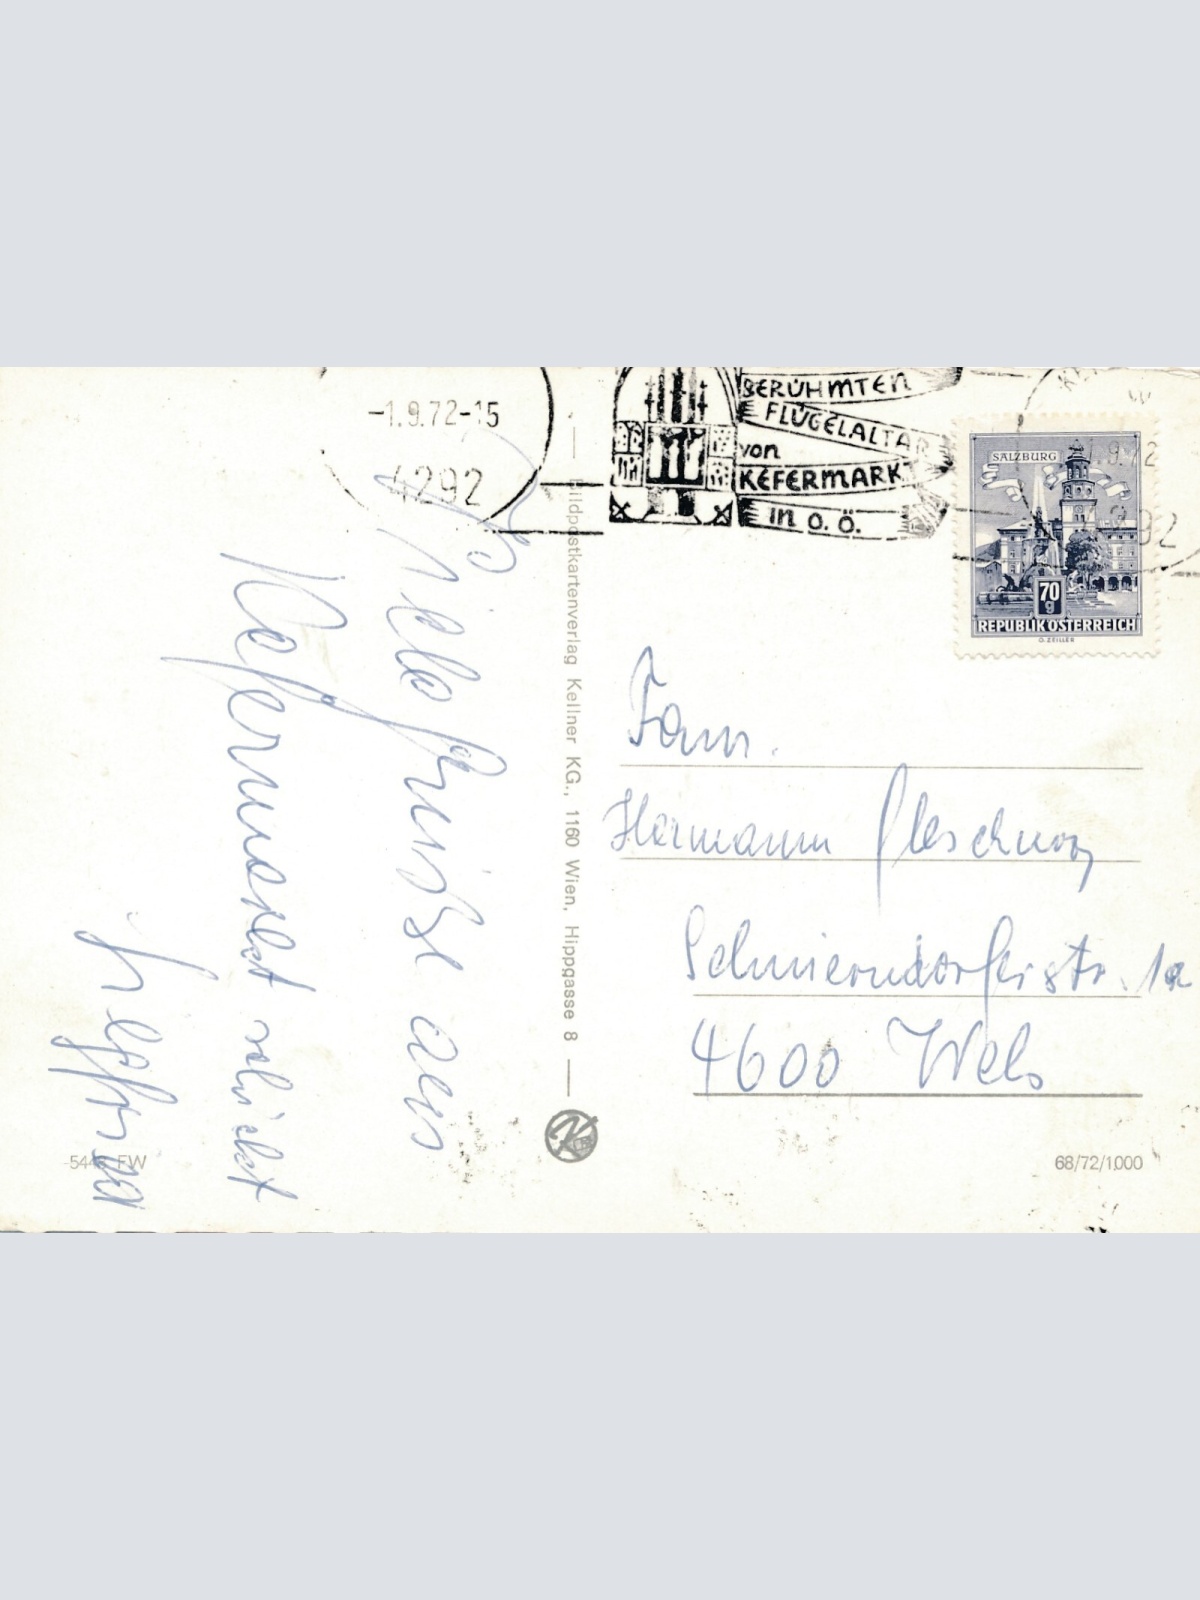 -1.9.72-15
4292
BERÜHMTEN
FLÜGELALTAR
von
KEFERMARKT
in O.Ö.
SALZBURG
70
g
REPUBLIK ÖSTERREICH
O. ZEILLER
Viele Grüsse aus
Kefermarkt schickt
Bildpostkartenverlag Kellner KG., 1160 Wien, Hippgasse 8
Fam.
Hermann
1a
4600 Wels
68/72/1000